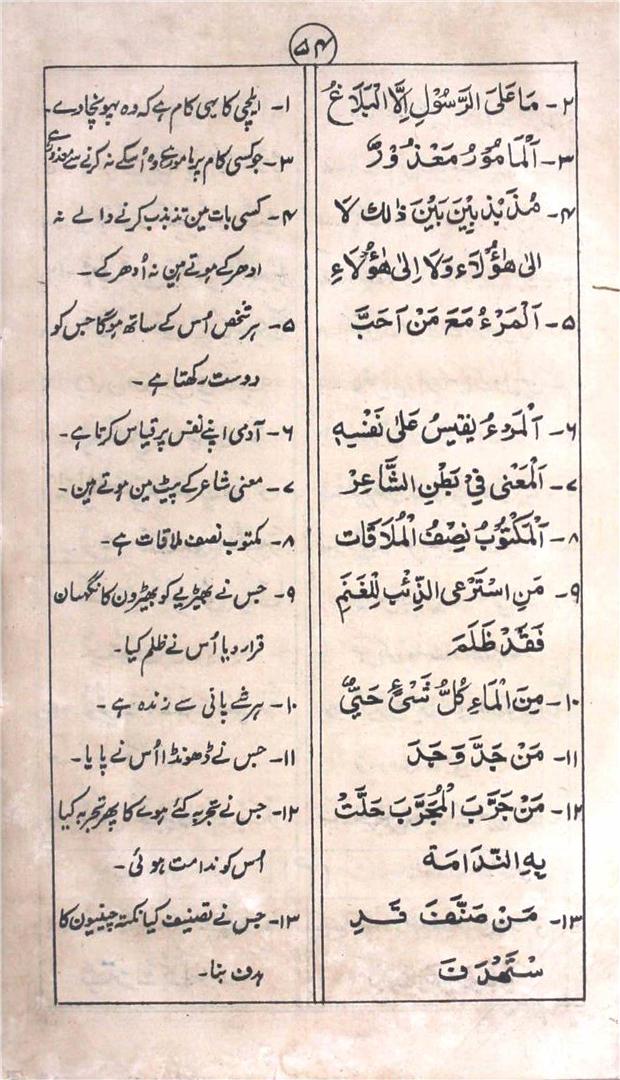 ۵۴
۲- مَا عَلَى الرَّسُوْلِ اِلَّا الْبَلَاغُ
۳- اَلْمَامُوْرُ مَعْذُوْرٌ
۴- مُذَبْذَبِيْنَ بَيْنَ ذٰلِكَ لَا
الى هٰؤُلَاءِ وَلَا اِلىٰ هٰؤُلَاءِ
۵- اَلْمَرْءُ مَعَ مَنْ اَحَبَّ
۶- اَلْمَرْءُ يَقِيْسُ عَلىٰ نَفْسِهٖ
۷- اَلْمَعْنٰى فِيْ بَطْنِ الشَّاعِرْ
۸- اَلْمَكْتُوْبُ نِصْفُ الْمُلَاقَات
۹- مَنِ اسْتَرْعى الذِّئْبَ لِلْغَنَمِ
فَقَدْ ظَلَمَ
۱۰- مِنَ الْمَاءِ كُلُّ شَيْءٍ حَيٌّ
۱۱- مَنْ جَدَّ وَجَدَ
۱۲- مَنْ جَرَّبَ الْمُجَرَّبَ حَلَّتْ
بِهِ النَّدَامَة
۱۳- مَنْ صَنَّفَ قَدِ
سْتَهْدَفَ
۱- ایلچی کا یہی کام ہے کہ وہ پہونچا دے۔
۳- جو کسی کام پر مامور ہے وہ اُسکے نہ کرنے سے معذور ہے
۴- کسی بات مین تذبذب کرنے والے نہ
ادھر کے ہوتے ہین نہ اُدھر کے۔
۵- ہر شخص اُس کے ساتھ ہوگا جس کو
دوست رکھتا ہے۔
۶- آدمی اپنے نفس پر قیاس کرتا ہے۔
۷- معنی شاعر کے پیٹ مین ہوتے ہین۔
۸- مکتوب نصف ملاقات ہے۔
۹- جس نے بھیڑیے کو بھیڑون کا نگہبان
قرار دیا اُس نے ظلم کیا۔
۱۰- ہر شے پانی سے زندہ ہے۔
۱۱- جس نے ڈھونڈا اُس نے پایا۔
۱۲- جس نے تجربہ کئے ہوے کا پھر تجربہ کیا
اُس کو ندامت ہوئی۔
۱۳- جس نے تصنیف کیا نکتہ چینیون کا
ہدف بنا۔